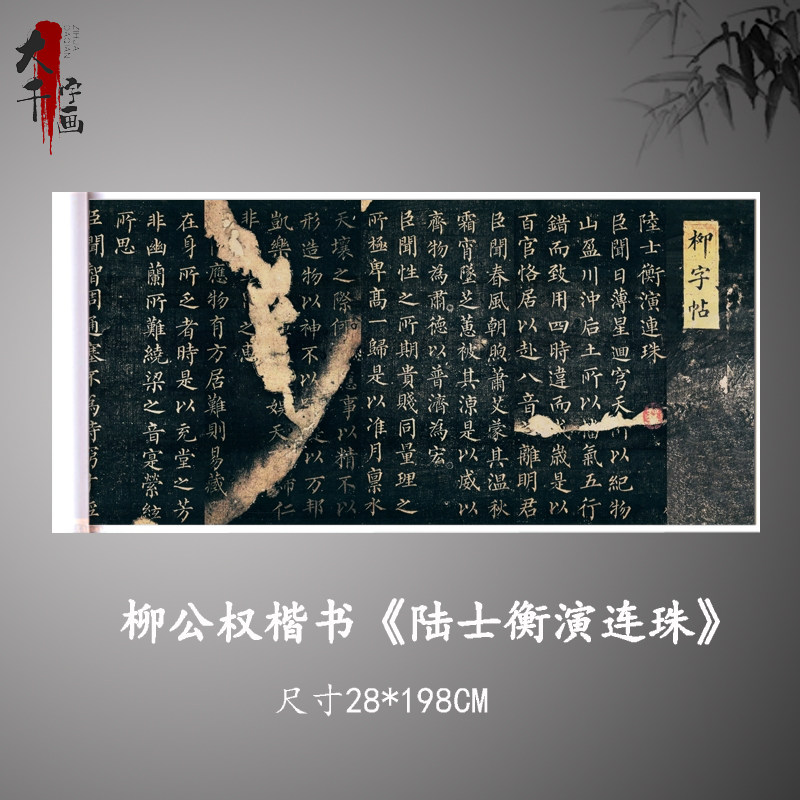 大千字画
柳字帖
陸士衡演連珠
臣聞日薄星迴穹天所以紀物
山盈川沖后土所以播氣五行
錯而致用四時違而成歲是以
百官恪居以赴八音之離明君
臣聞春風朝煦蕭艾蒙其温秋
霜宵墜芝蕙被其涼是以威以
齊物為肅德以普濟為宏
臣聞性之所期貴賤同量理之
所極卑髙一歸是以准月禀水
天壤之際何
事以精不以
形造物以神不以
是以万邦
凱樂
天
仁
非
之
應物有方居難則易藏
在身所乏者時是以充堂之芳
非幽蘭所難繞梁之音寔縈絃
所思
臣聞智周通塞不為時窮
柳公权楷书《陆士衡演连珠》
尺寸28*198CM